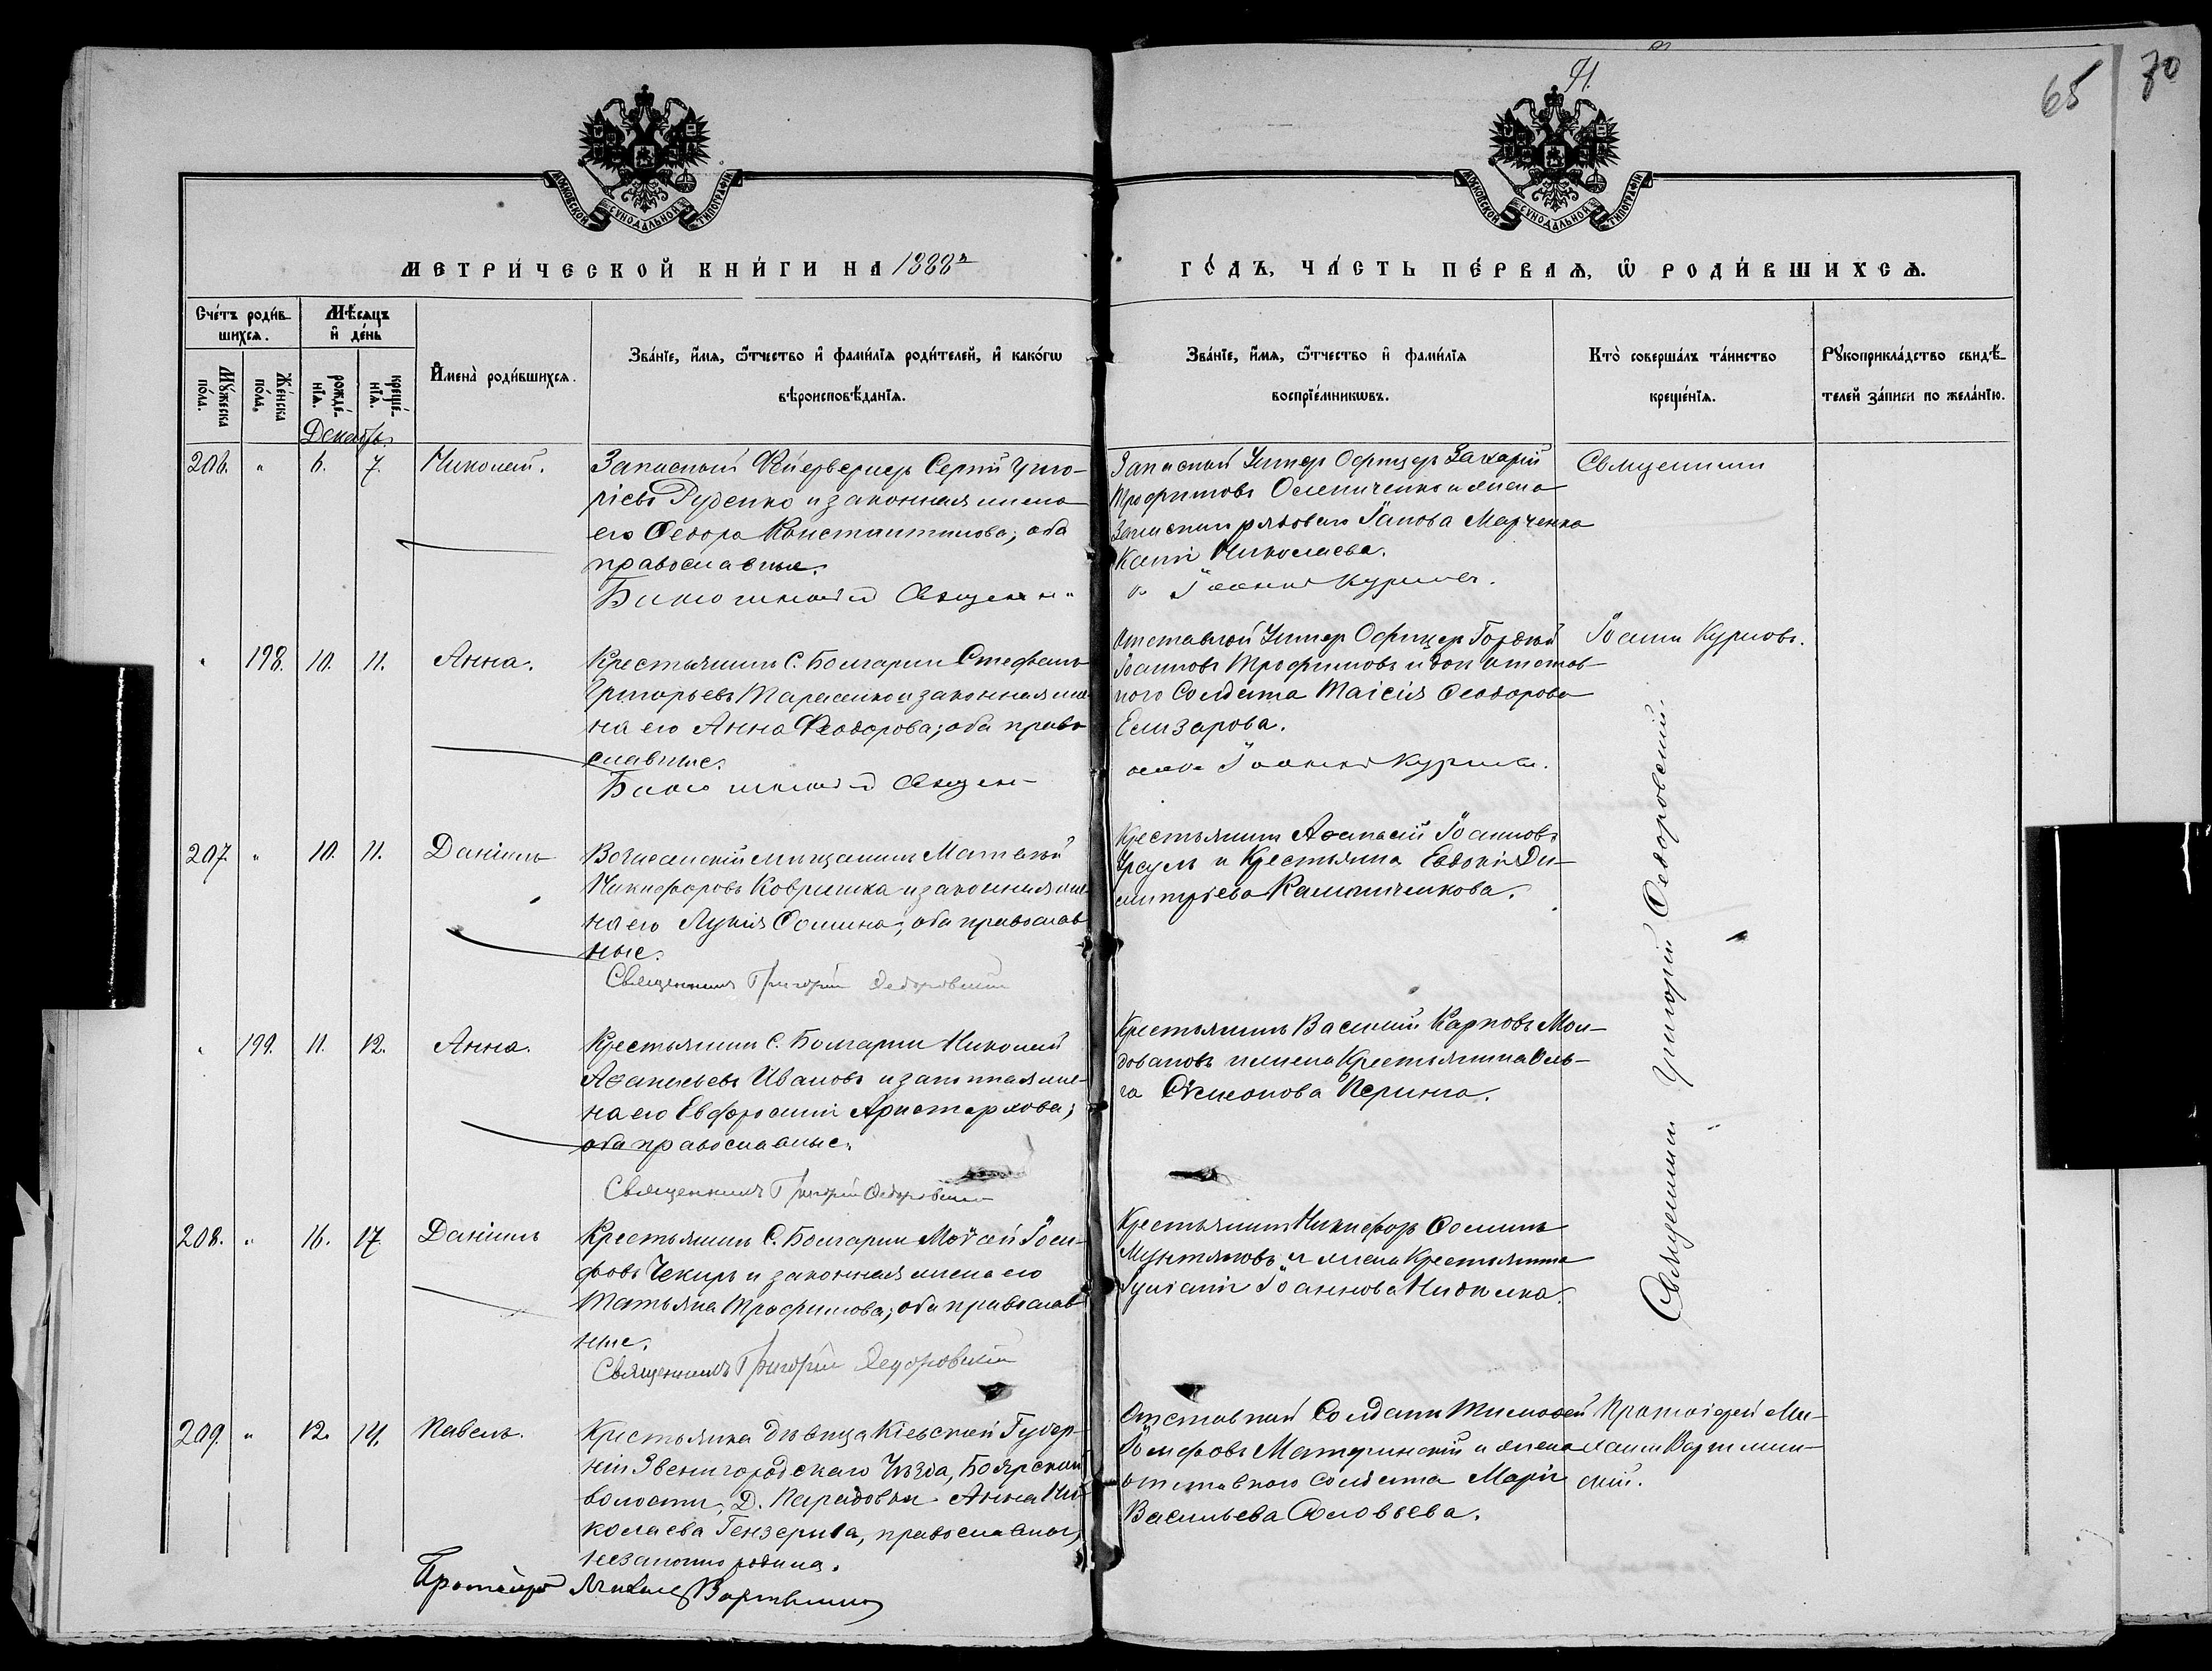 71.
65
70
МОСКОВСКОЙ СУНОДАЛЬНОЙ ТИПОГРАФІИ
МОСКОВСКОЙ СУНОДАЛЬНОЙ ТИПОГРАФІИ
МЕТРИ́ЧЕСКОЙ КНИ́ГИ НА 1888й
ГО́ДЪ, ЧА́СТЬ ПЕ́РВАѦ, Ѡ РОДИ́ВШИХСѦ.
Сче́тъ роди́в-
шихсѧ.
Мѣ́сяцъ
и҆ де́нь
Му́жеска
по́ла.
Же́нска
по́ла.
рожде́-
нїѧ.
креще́-
нїѧ.
И҆мена̀ роди́вшихсѧ.
Зва́нїе, и҆́мѧ, ѻ҆́тчество и҆ фами́лїѧ роди́телей, и҆ како́гѡ
вѣроисповѣ́данїѧ.
Зва́нїе, и҆́мѧ, ѻ҆́тчество и҆ фами́лїѧ
воспрїе́мникѡвъ.
Кто̀ соверша́лъ та́инство
креще́нїѧ.
Рꙋкоприкла́дство свидѣ́-
телей за́писи по жела́нїю.
Декабрь.
206. " 6. 7. Николай.
Запасный Фейерверкеръ Сергій Григо-
ріевъ Руденко и законная жена
его Ѳеодора Константинова; оба
православные.
Запасный Унтеръ Офицеръ Захарій
Трофимовъ Олейниченко и жена
Запаснаго рядоваго Іакова Марченко
Николаева.
Іоаннъ Курловъ.
Священникъ
Іоаннъ Курловъ.
" 198. 10. 11. Анна.
Крестьянинъ С. Болгарии Стефанъ
Григорьевъ Тарасенко и законная же-
на его Анна Ѳеодорова; оба право-
славные.
Отставной Унтеръ Офицеръ Гордій
Іоанновъ Трофимовъ и дочь отстав-
ного Солдата Таисія Ѳеодорова
Елизарова.
Іоаннъ Курловъ.
207. " 10. 11. Даніилъ
мѣщанинъ Матвѣй
Никифоровъ Ковришка и законная же-
на его Лукія Ѳомина; оба православ-
ные.
Священникъ Григорій Ѳедоровскій
Крестьянинъ Аѳанасій Іоанновъ
Урсулъ и Крестьянка Евдокія Ди-
митріева Калиниченкова.
Священникъ Григорій Ѳедоровскій.
" 199. 11. 12. Анна.
Крестьянинъ С. Болгарии Николай
Аѳанасьевъ Ивановъ и законная же-
на его Евфросинія Аристархова;
оба православные.
Священникъ Григорій Ѳедоровскій
Крестьянинъ Василій Карповъ Мол-
довановъ и жена Крестьянина Оль-
га Симеонова Перина.
208. " 16. 17. Даніилъ
Крестьянинъ С. Болгарии Мойсей Іоси-
фовъ Чекиръ и законная жена его
Татьяна Трофимова; оба православ-
ные.
Священникъ Григорій Ѳедоровскій
Крестьянинъ Никифоръ Ѳоминъ
Мунтяновъ и жена Крестьянина
Іуліанія Іоаннова
209. " 12. 14. Павелъ.
Крестьянка дѣвица Кіевской Губер-
ніи Звенигородскаго Уѣзда, Боярской
волости, Д. Анна Ни-
колаева Гензерика, православная,
незаконно родила.
Отставной Солдатъ Тимоѳей
Іосифовъ Матушинскій и жена
отставного солдата Марія
Васильева Соловьева.
Протоіерей Ми-
хаилъ Вартмин-
скій.
Протоіерей Михаилъ Вартминскій